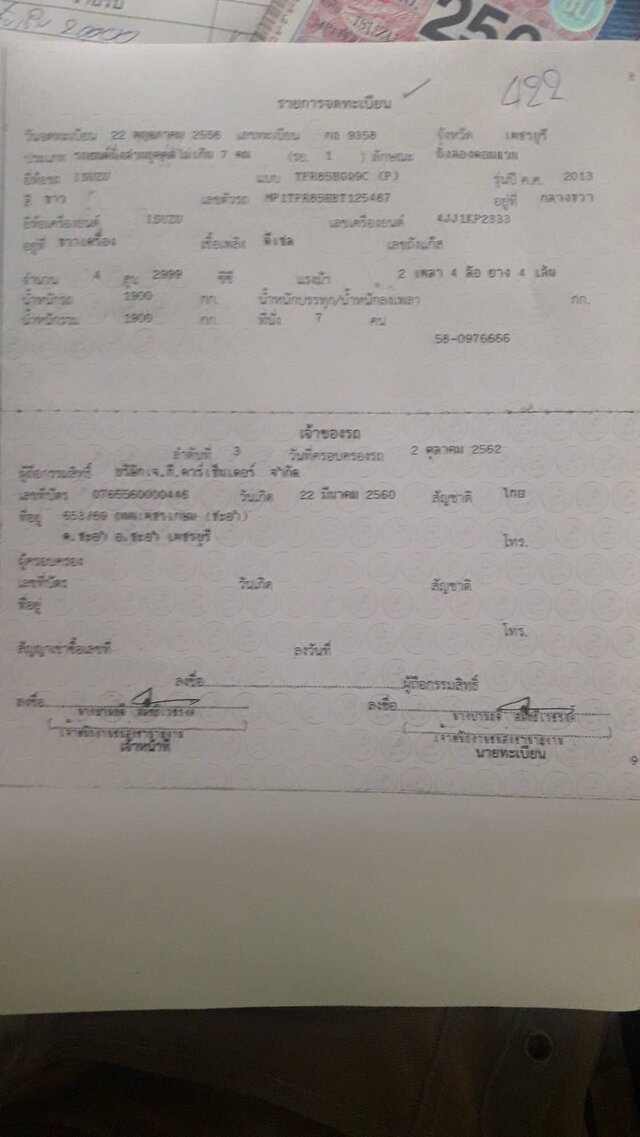 20000
250
8
รายการจดทะเบียน
422
วันจดทะเบียน 22 พฤษภาคม 2556 เลขทะเบียน กธ 9358 จังหวัด เพชรบุรี
ประเภท รถยนต์นั่งส่วนบุคคลไม่เกิน 7 คน (รย. 1 ) ลักษณะ นั่งสองตอนแวน
ยี่ห้อรถ ISUZU แบบ (P) รุ่นปี ค.ศ. 2013
สี ขาว เลขตัวรถ MP1TFR85HBT125487 อยู่ที่ กลางขวา
ยี่ห้อเครื่องยนต์ ISUZU เลขเครื่องยนต์ 4JJ1KP2333
อยู่ที่ ขวาเครื่อง เชื้อเพลิง ดีเซล เลขถังแก๊ส
จำนวน 4 สูบ 2999 ซีซี แรงม้า 2 เพลา 4 ล้อ ยาง 4 เส้น
น้ำหนักรถ 1900 กก. น้ำหนักบรรทุก/น้ำหนักลงเพลา กก.
น้ำหนักรวม 1900 กก. ที่นั่ง 7 คน
58-0976666
เจ้าของรถ
ลำดับที่ 3 วันที่ครอบครองรถ 2 ตุลาคม 2562
ผู้ถือกรรมสิทธิ์ บริษัท จำกัด
เลขที่บัตร 0765560000446 วันเกิด 22 มีนาคม 2560 สัญชาติ ไทย
ที่อยู่ 653/69 ถนนเพชรเกษม (ชะอำ)
ต.ชะอำ อ.ชะอำ เพชรบุรี โทร.
ผู้ครอบครอง
เลขที่บัตร วันเกิด สัญชาติ
ที่อยู่
โทร.
สัญญาเช่าซื้อเลขที่ ลงวันที่
ลงชื่อ ผู้ถือกรรมสิทธิ์
ลงชื่อ ลงชื่อ
เจ้าหน้าที่ นายทะเบียน
9